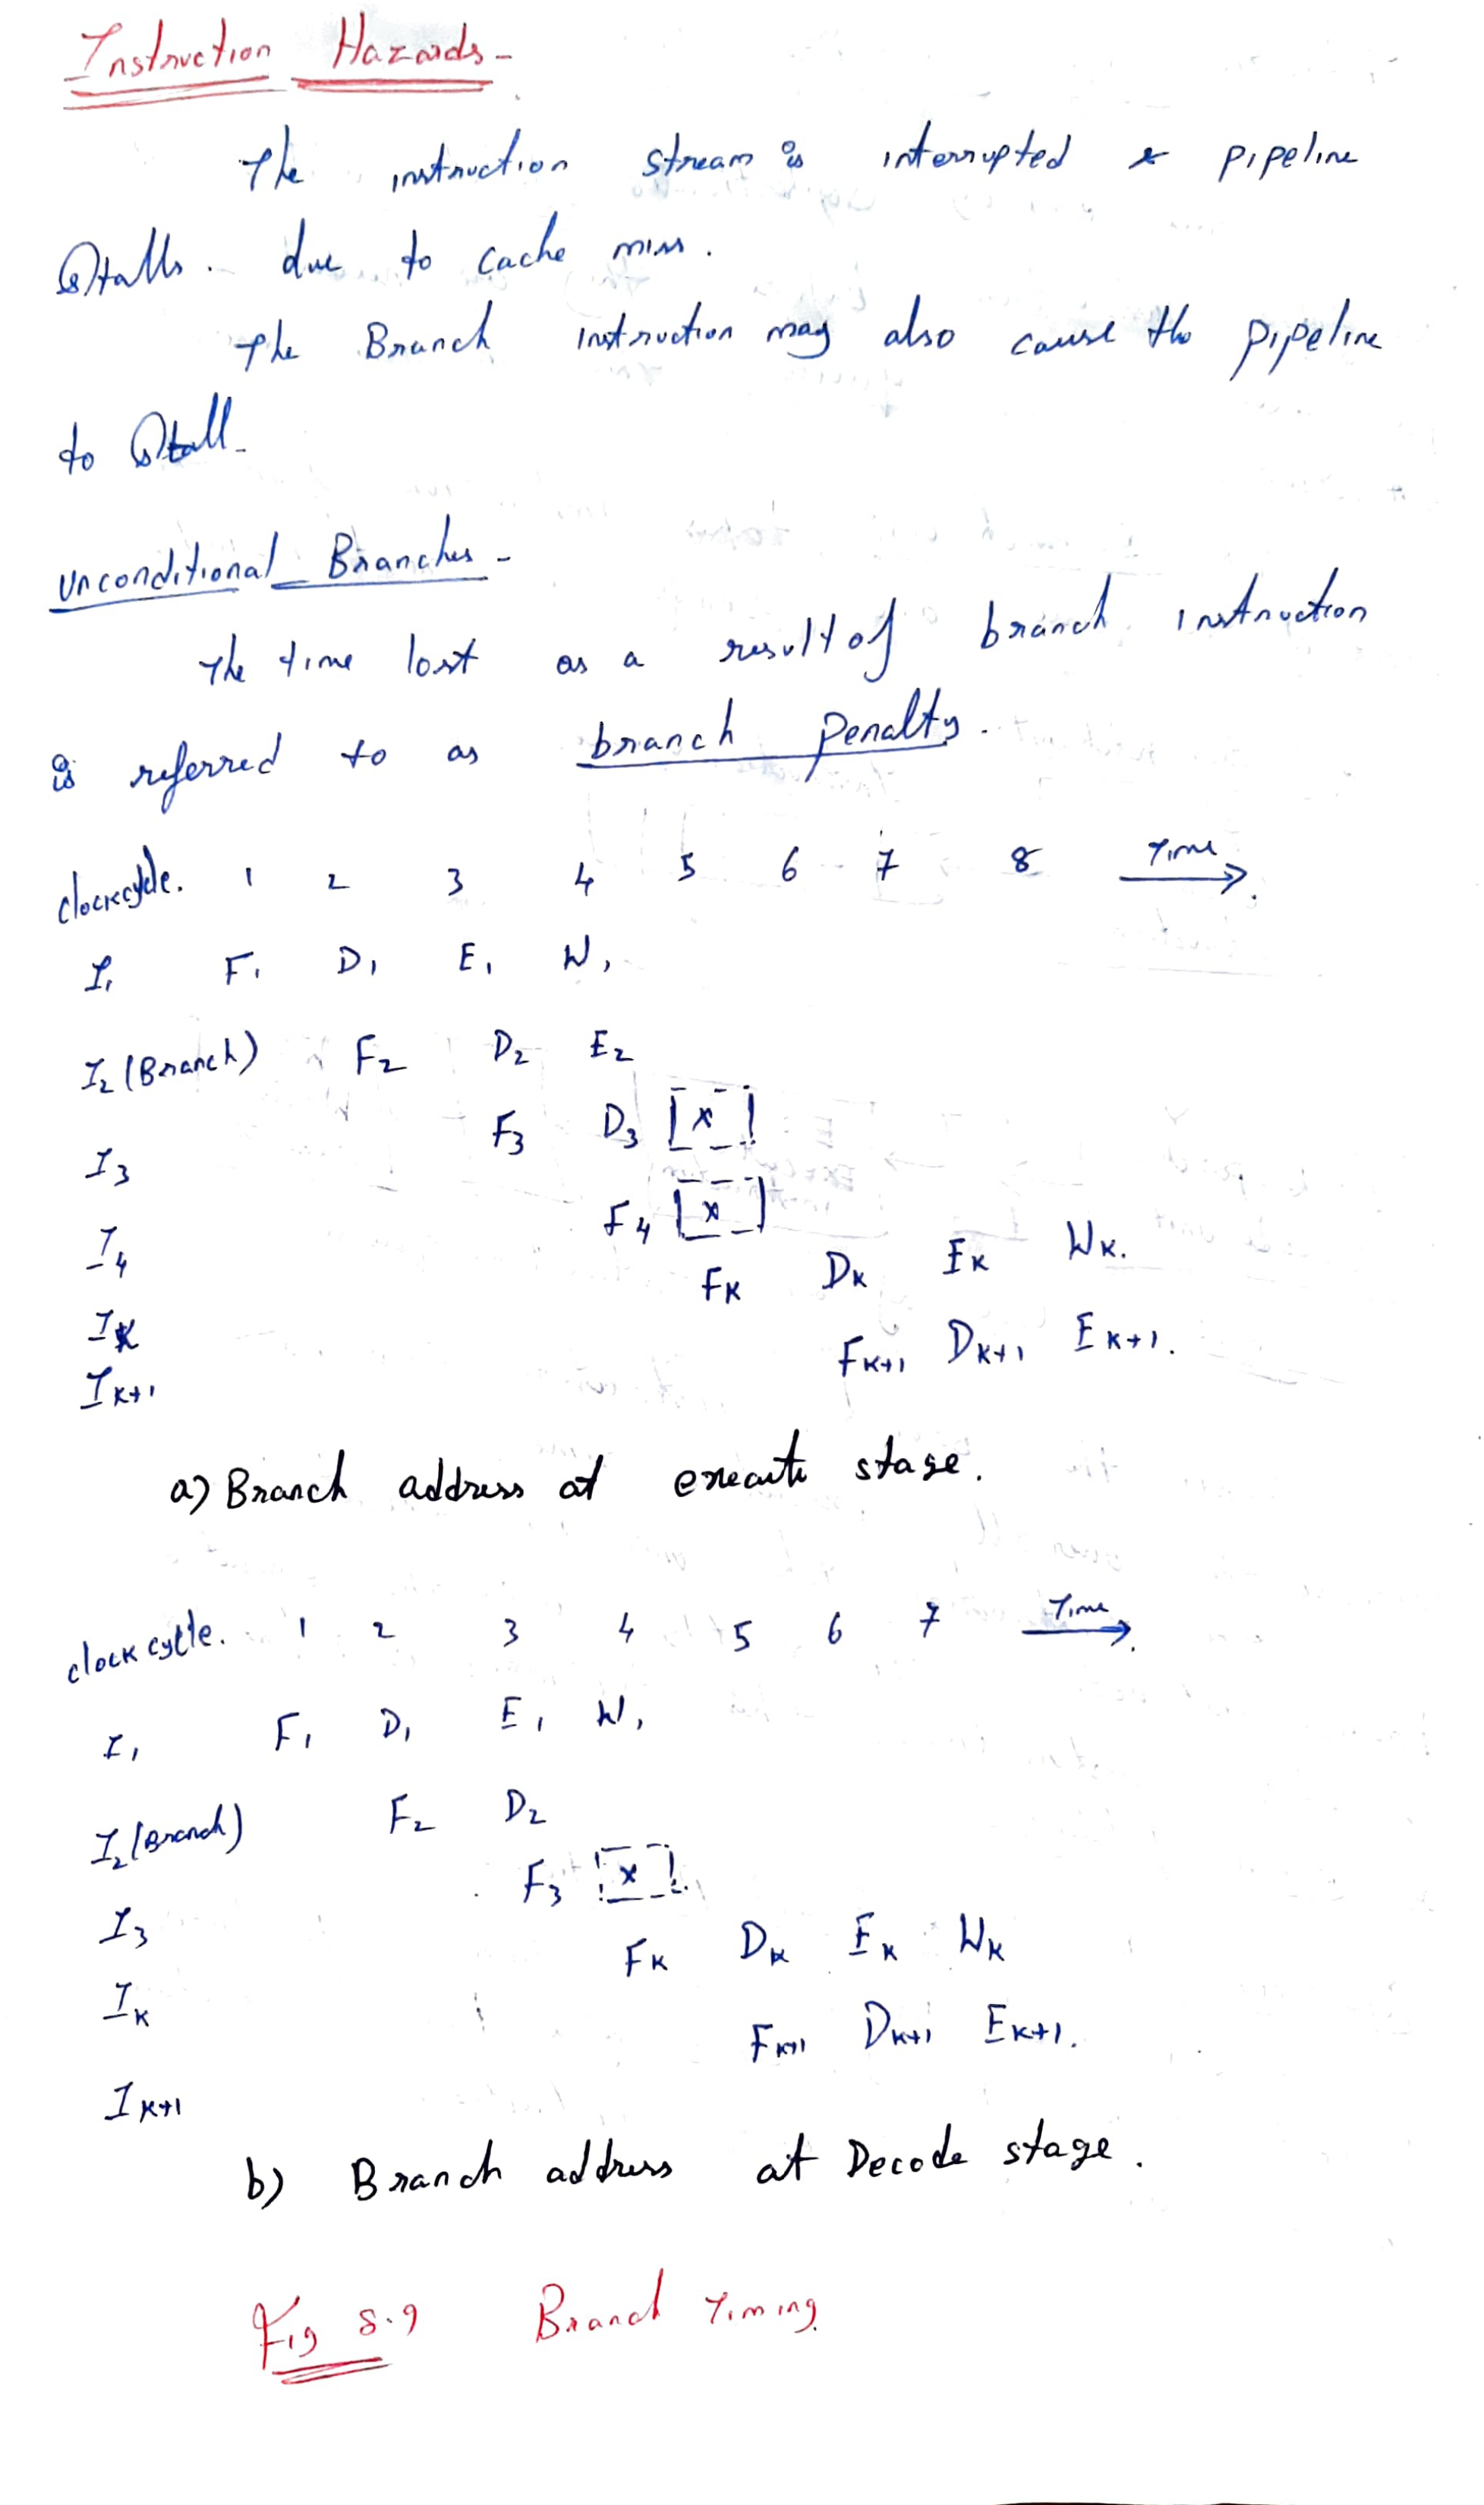 Instruction Hazards-
The instruction stream is interrupted & pipeline
Stalls. due to cache miss.
The Branch instruction may also cause the pipeline
to Stall.
Unconditional Branches-
The time lost as a result of branch instruction
is referred to as branch penalty.
clockcycle. 1 2 3 4 5 6 7 8 Time
I1 F1 D1 E1 W1
I2 (Branch) F2 D2 E2
I3 F3 D3 x
I4 F4 x
IK FK DK EK WK.
IK+1 FK+1 DK+1 EK+1.
a) Branch address at execute stage.
clock cycle. 1 2 3 4 5 6 7 Time
I1 F1 D1 E1 W1
I2 (Branch) F2 D2
I3 F3 x
IK FK DK EK WK
IK+1 FK+1 DK+1 EK+1.
b) Branch address at Decode stage.
Fig 8.9 Branch Timing.